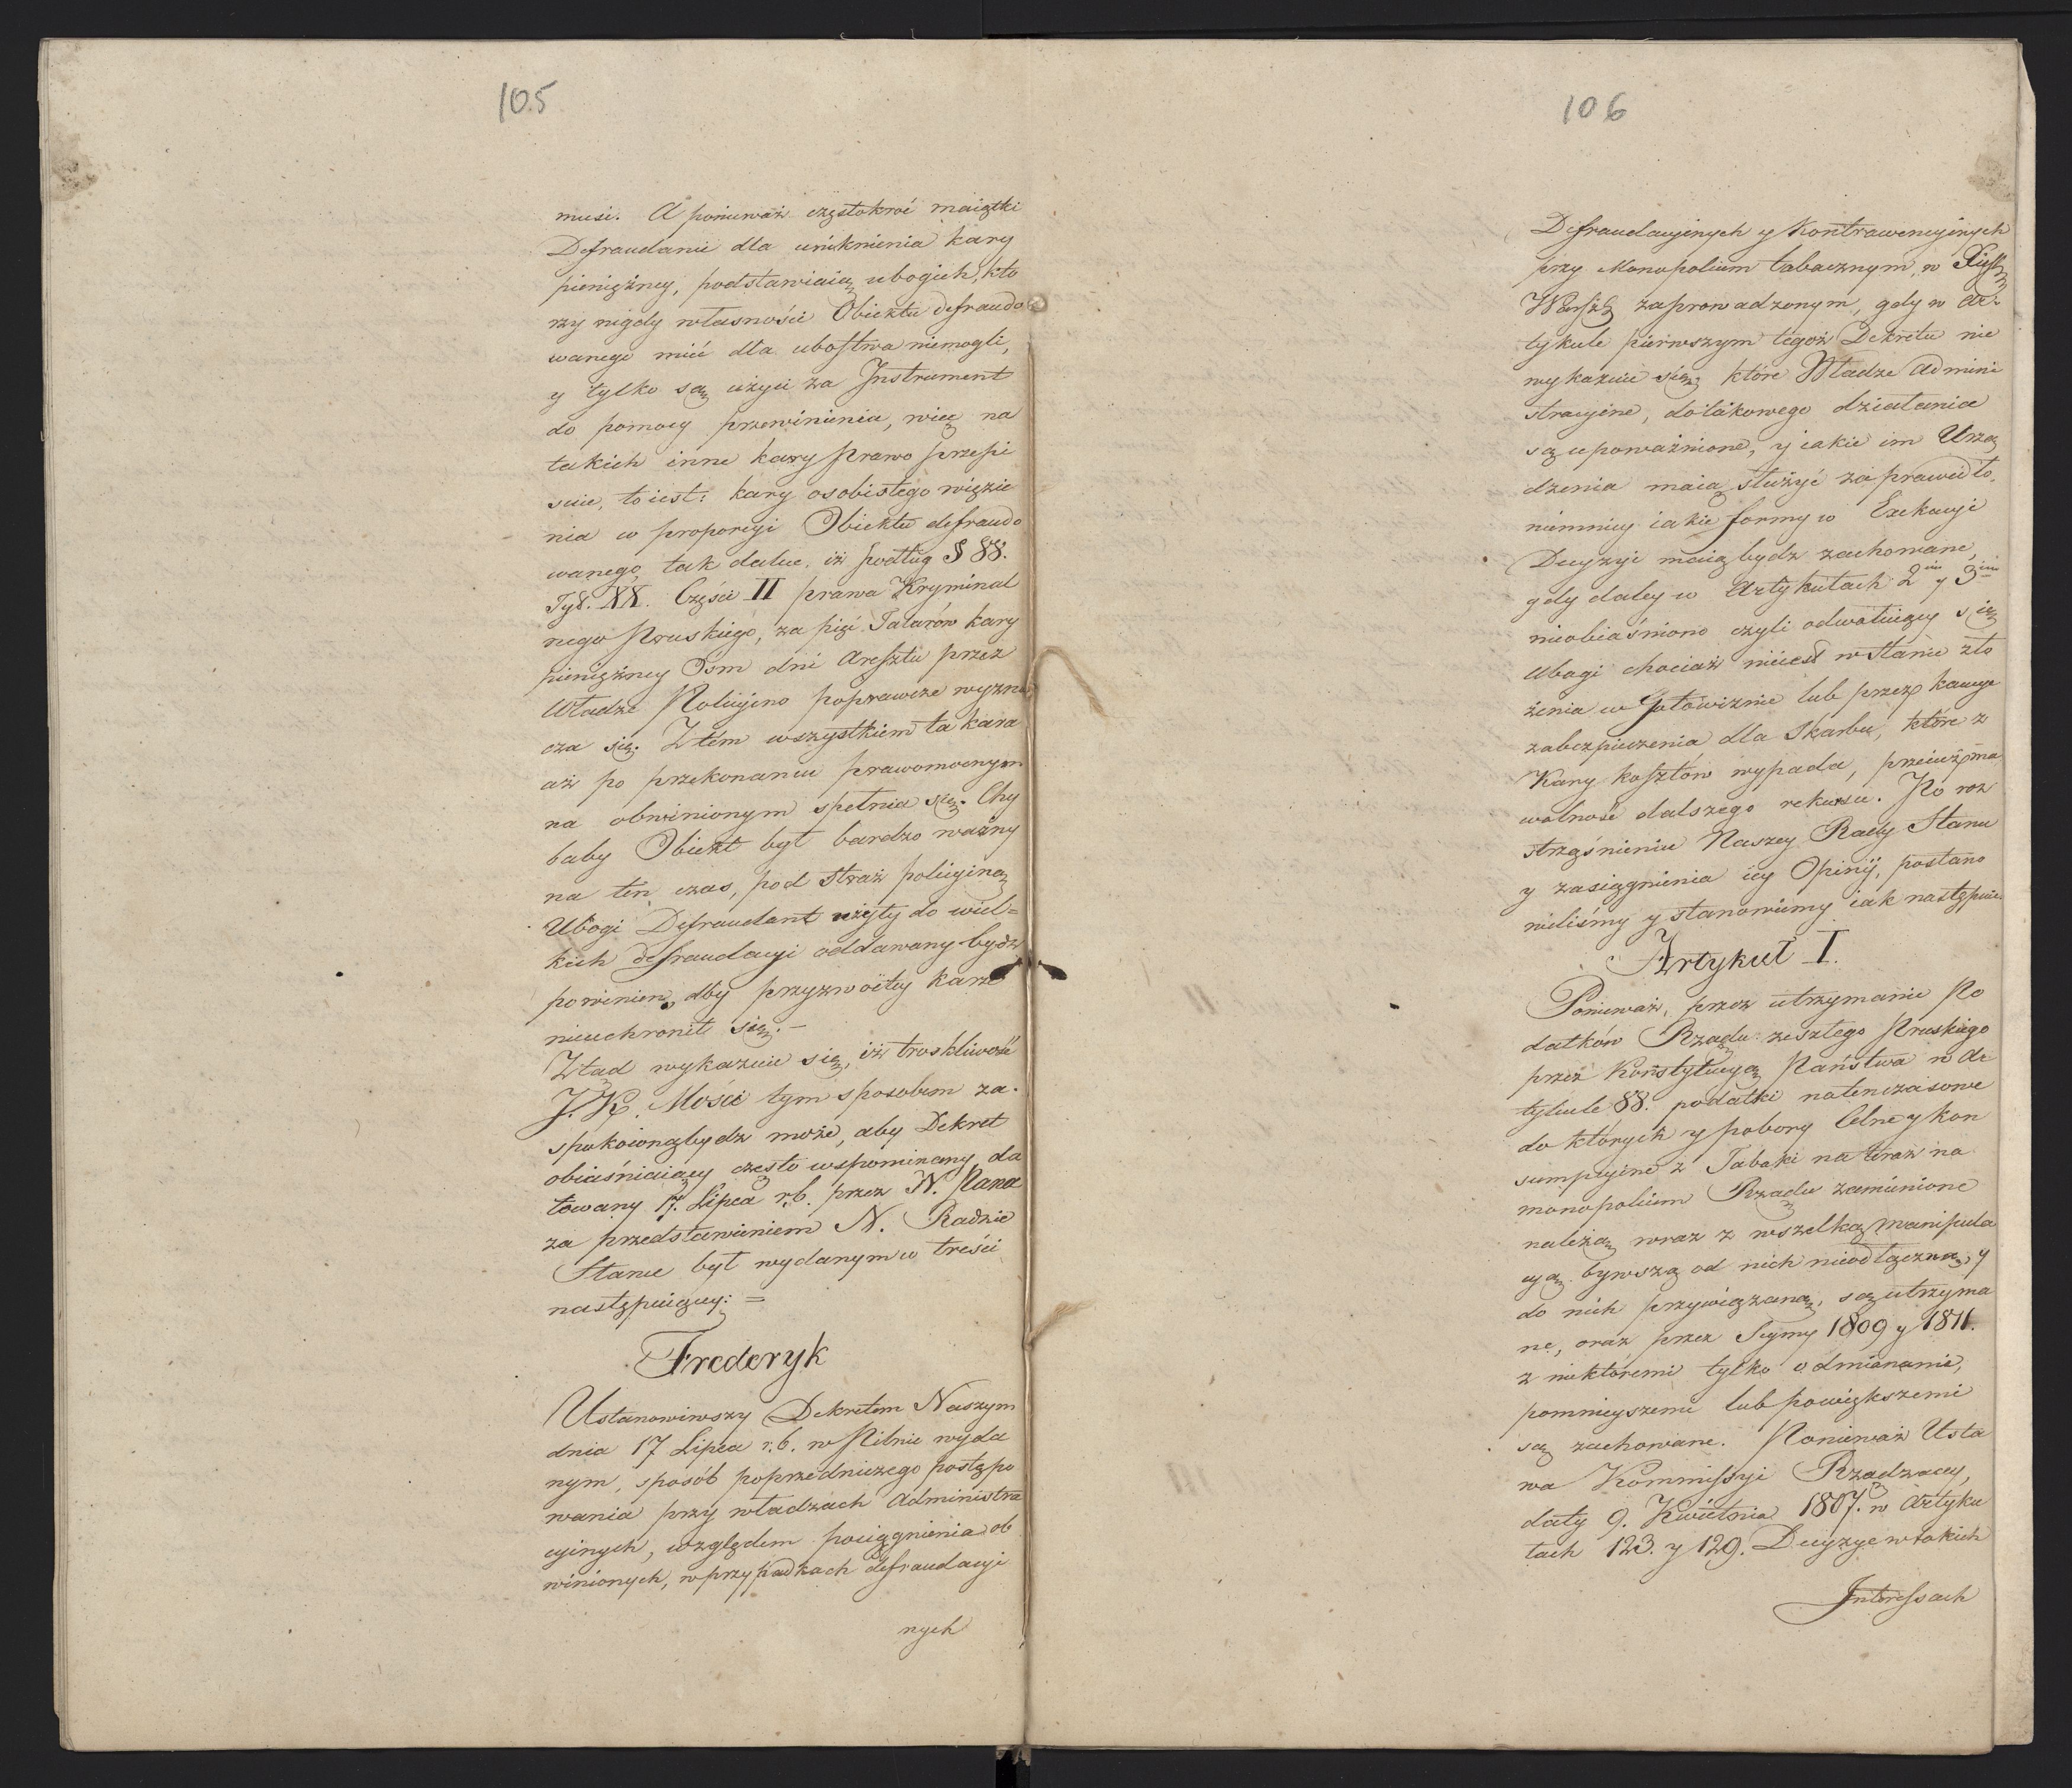 105
musi. A ponieważ częstokroć maiątki
Defraudanci dla uniknienia kary
pieniężney, podstawiaią ubogich, któ
rzy nigdy własności Obiektu defraudo
wanego mieć dla ubostwa niemogli,
y tylko są użyci za Instrument
do pomocy przewinienia, więc na
takich inne kary Prawo przepi
suie, to iest: kary osobistego więzie
nia w proporcyi Obiektu defraudo
wanego, tak dalece, iż podług § 88.
Tyt. XX. Części II prawa Kryminal
nego Pruskiego, za pięć Talarów kary
pieniężney Ośm dni Aresztu przez
Władze Policyino poprawcze wyzna
cza się. Z tém wszystkiem ta kara
aż po przekonaniu prawomocnym
na obwinionym spełnia się. Chy
baby Obiekt był bardzo ważny
na ten czas, pod straż policyiną
Ubogi Defraudant użyty do wiel=
kich defraudacyi oddawany bydź
powinien, aby przyzwoitey karze
nieuchronił się.–
Ztąd wykazuie się, iż troskliwość
J. K. Mości tym sposobem za.
spokoioną bydź może, aby Dekret
obiaśniaiący często wspominany da
towany 17. Lipca r.b. przez N. Pana
za przedstawieniem N. Radzie
Stanu był wydanym w treści
następuiącey: =
Frederyk
Ustanowiwszy Dekretem Naszym
dnia 17 Lipca r.b. w Pilnie wyda
nym, sposób poprzedniczego postępo
wania przy władzach Administra
cyinych, względem pociągnienia ob
winionych, w przypadkach defraudacyi
nych
106
Defraudacyinych y Kontrawencyinych
przy Monopolium tabacznym, w Xięst.
Warsz. zaprowadzonym, gdy w Ar=
tykule pierwszym tegoż Dekretu nie
wykazuie się: które Władze Admini
stracyine, do takowego działania
są upoważnione, y iakie im Urzą
dzenia maią służyć za prawidło,
niemniey iakie formy w Exekucyi
Decyzyi maią bydz zachowane,
gdy daley w Artykułach 2im y 3im
nieobiaśniono czyli odwołuiący się
Ubogi chociaż nieiest w stanie zło
żenia w Gotowiznie lub przez kaucye
zabezpieczenia dla Skarbu, które z
Kary kosztów wypada, przecież ma
wolność dalszego rekursu. Po roz
strząśnieniu Naszey Rady Stanu
y zasiągnienia iey Opinij, postano
wiliśmy y stanowiemy iak następuie.
Artykuł I.
Ponieważ, przez utrzymanie Po
datków Rządu zeszłego Pruskiego
przez Konstytucyą Państwa w Ar
tykule 88. podatki natenczasowe
do których y pobory Celne y kon
sumpcyine z Tabaki na teraz na
monopolium Rządu zamienione
należą, wraz z wszelką manipula
cyą bywszą od nich nieodłączną, y
do nich przywiązaną, są utrzyma
ne, oraz przez Seymy 1809 y 1811.
z niektóremi tylko odmianami,
pomnieyszemi lub powiększemi
są zachowane. Ponieważ Usta
wa Kommissyi Rządzącey,
daty 9. Kwietnia 1807. w Artyku
łach 123. y 129. Decyzye w takich
Interessach